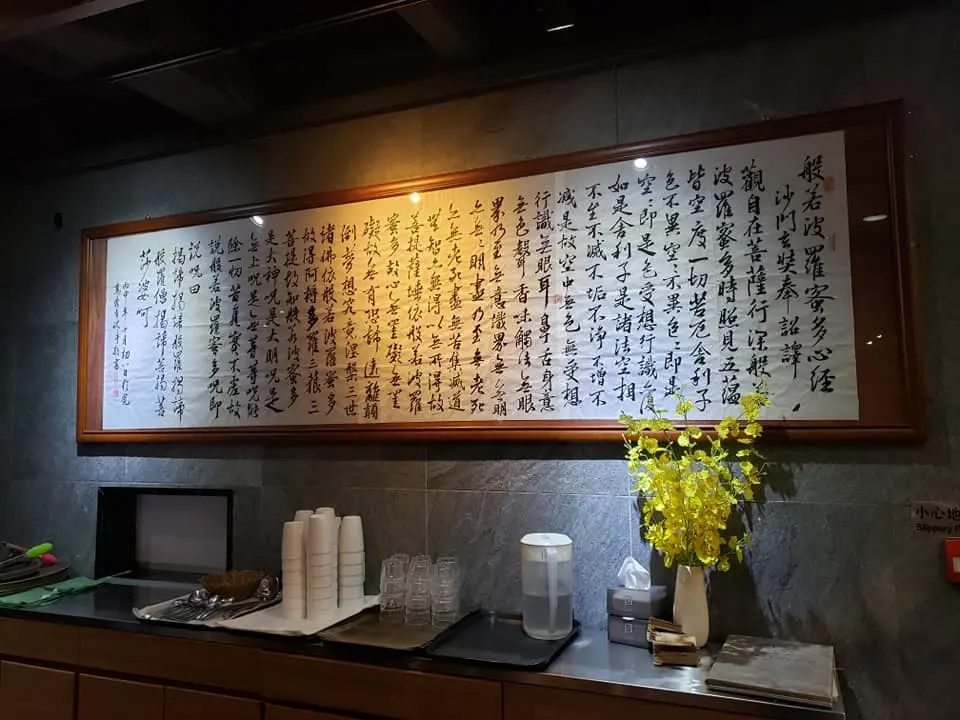 般若波羅蜜多心經
沙門玄奘奉 詔譯
觀自在菩薩行深般若
波羅蜜多時照見五蘊
皆空度一切苦厄舍利子
色不異空〻不異色〻即是
空〻即是色受想行識亦復
如是舍利子是諸法空相
不生不滅不垢不淨不增不
減是故空中無色無受想
行識無眼耳鼻舌身意
無色聲香味觸法無眼
界乃至無意識界無無明
亦無〻明盡乃至無老死
亦無老死盡無苦集滅道
無智亦無得以無所得故
菩提薩埵依般若波羅
蜜多故心無罣礙無罣
礙故無有恐怖遠離顛
倒夢想究竟涅槃三世
諸佛依般若波羅蜜多
故得阿耨多羅三藐三
菩提故知般若波羅蜜多
是大神呪是大明呪是
無上呪是無等等呪能
除一切苦真實不虛故
說般若波羅蜜多呪即
說呪曰
揭諦揭諦般羅揭諦
般羅僧揭諦菩提
莎婆呵
丙申年十月初
小心地
Slippery